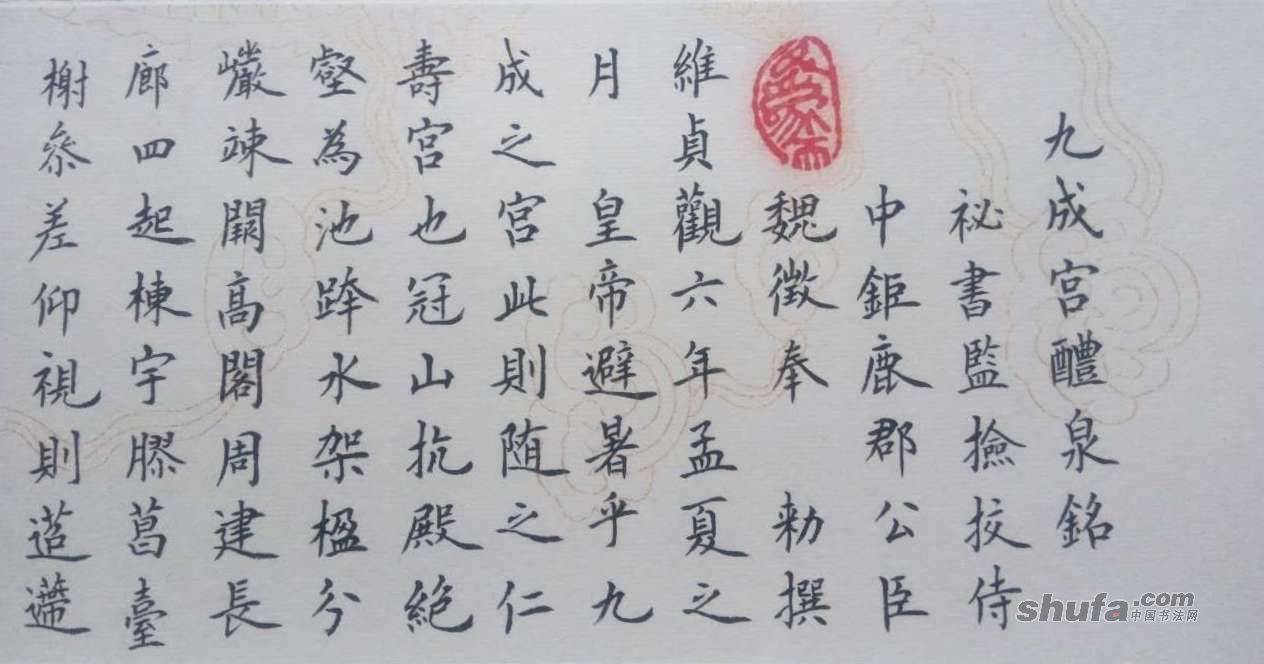 九成宫醴泉銘
祕書監撿挍侍
中鉅鹿郡公臣
魏徵奉 勑撰
維貞觀六年孟夏之
月 皇帝避暑乎九
成之宫此則随之仁
壽宫也冠山抗殿絶
壑為池跨水架楹分
巖竦闕高閣周建長
廊四起棟宇膠葛臺
榭叅差仰視則迢遰
shufa.com
中国书法网